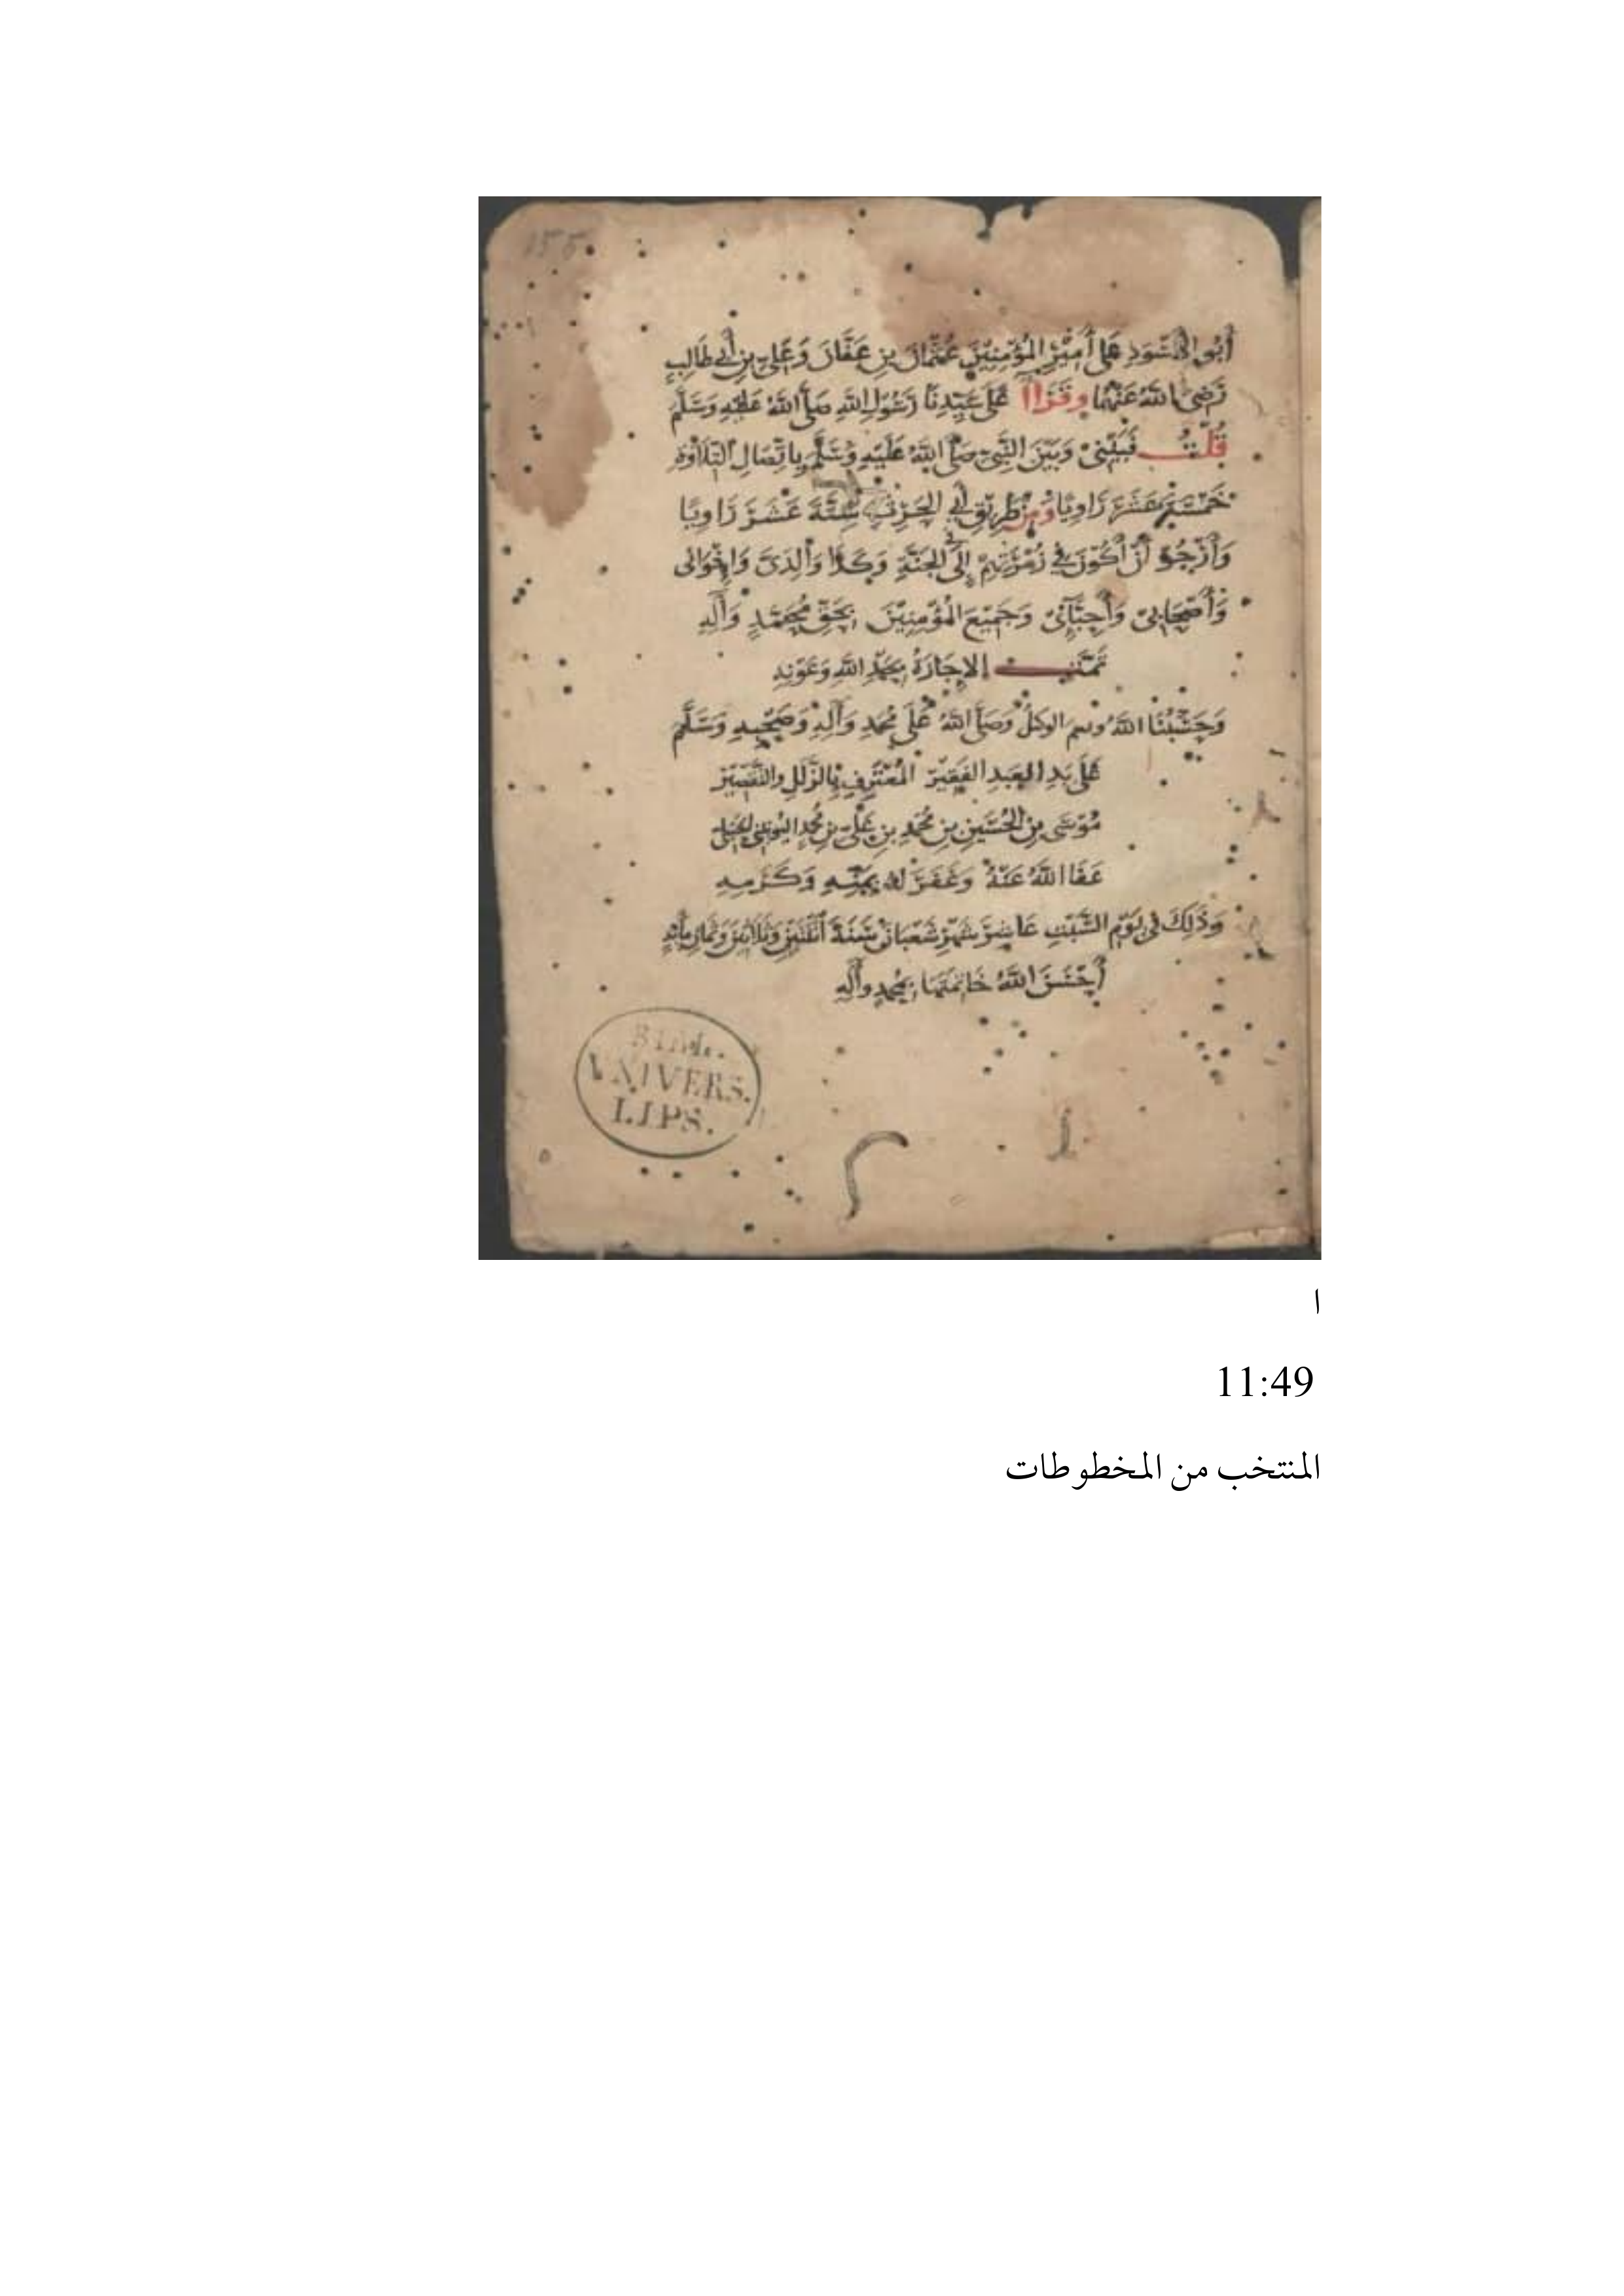 155
أَبُو الأَسْوَدِ عَلَى أَمِيْرِ المُؤْمِنِيْنَ عُثْمَانَ بنِ عَفَّانَ وَعَلِيِّ بنِ أَبِي طَالِبٍ
رَضِيَ اللهُ عَنْهُمَا وقَرَاا عَلَى سَيِّدِنَا رَسُولِ اللهِ صَلَّى اللهُ عَلَيْهِ وَسَلَّمَ
قُلْتُ فَبَيْنِيْ وَبَيْنَ النَّبِيِّ صَلَّى اللهُ عَلَيْهِ وَسَلَّمَ بِاتِّصَالِ التِّلَاوَةِ
خَمْسَةَ عَشَرَ رَاوِيًا وَمِنْ طَرِيْقِ أَبِي الحَرْثِ سِتَّةَ عَشَرَ رَاوِيًا
وَأَرْجُو أَنْ أَكُوْنَ فِي زُمْرَتِهِمْ إِلَى الجَنَّةِ وَكَذَا وَالِدَيَّ وَإِخْوَانِي
وَأَصْحَابِيْ وَأَحِبَّآئِيْ وَجَمِيْعَ الْمُؤْمِنِيْنَ بِحَقِّ مُحَمَّدٍ وَآلِهِ
تَمَّتِ الإِجَازَةُ بِحَمْدِ اللهِ وَعَوْنِهِ
وَحَسْبُنَا اللهُ ونعم الوكيلُ وَصَلَّى اللهُ عَلَى مُحَمَّدٍ وَآلِهِ وَصَحْبِهِ وَسَلَّمَ
عَلَى يَدِ العَبدِ الفَقِيْرِ المُعْتَرِفِ بِالزَّلَلِ والتَّقْصِيْرِ
مُوْسَى بنِ الْحُسَيْنِ بنِ مُحَمَّدِ بنِ عَلِيِّ بنِ مُحَمَّدٍ اليُونِيْنِي الحَنْبَلِي
عَفَا اللهُ عَنْهُ وَغَفَرَ لَهُ بِمَنِّهِ وَكَرَمِهِ
وَذَلِكَ فِي يَوْمِ السَّبْتِ عَاشِرَ شَهْرِ شَعْبَانَ سَنَةَ اثْنَتَيْنِ وَثَلَاثِيْنَ وَثَمَانِ مِائَةٍ
أَحْسَنَ اللهُ خَاتِمَتَهَا بِمُحَمَّدٍ وآلِهِ
BIBL.
VNIVERS.
LIPS.
ا
11:49
المنتخب من المخطوطات